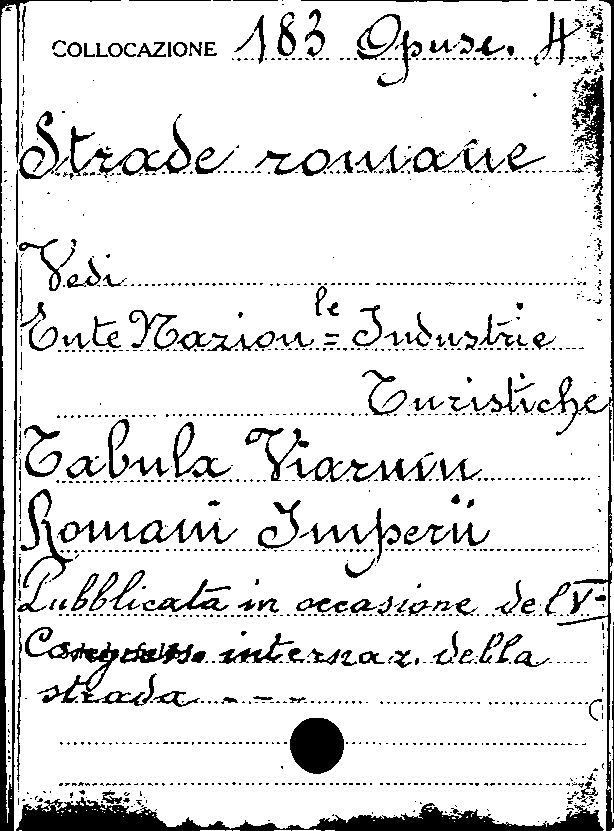 COLLOCAZIONE 183 Opusc. 4
Strade romane
Vedi
Ente Nazion le = Industrie
Turistiche
Tabula Viarum
Romani Imperii
Pubblicata in occasione del V-
Congresso internaz. della
strada - - -